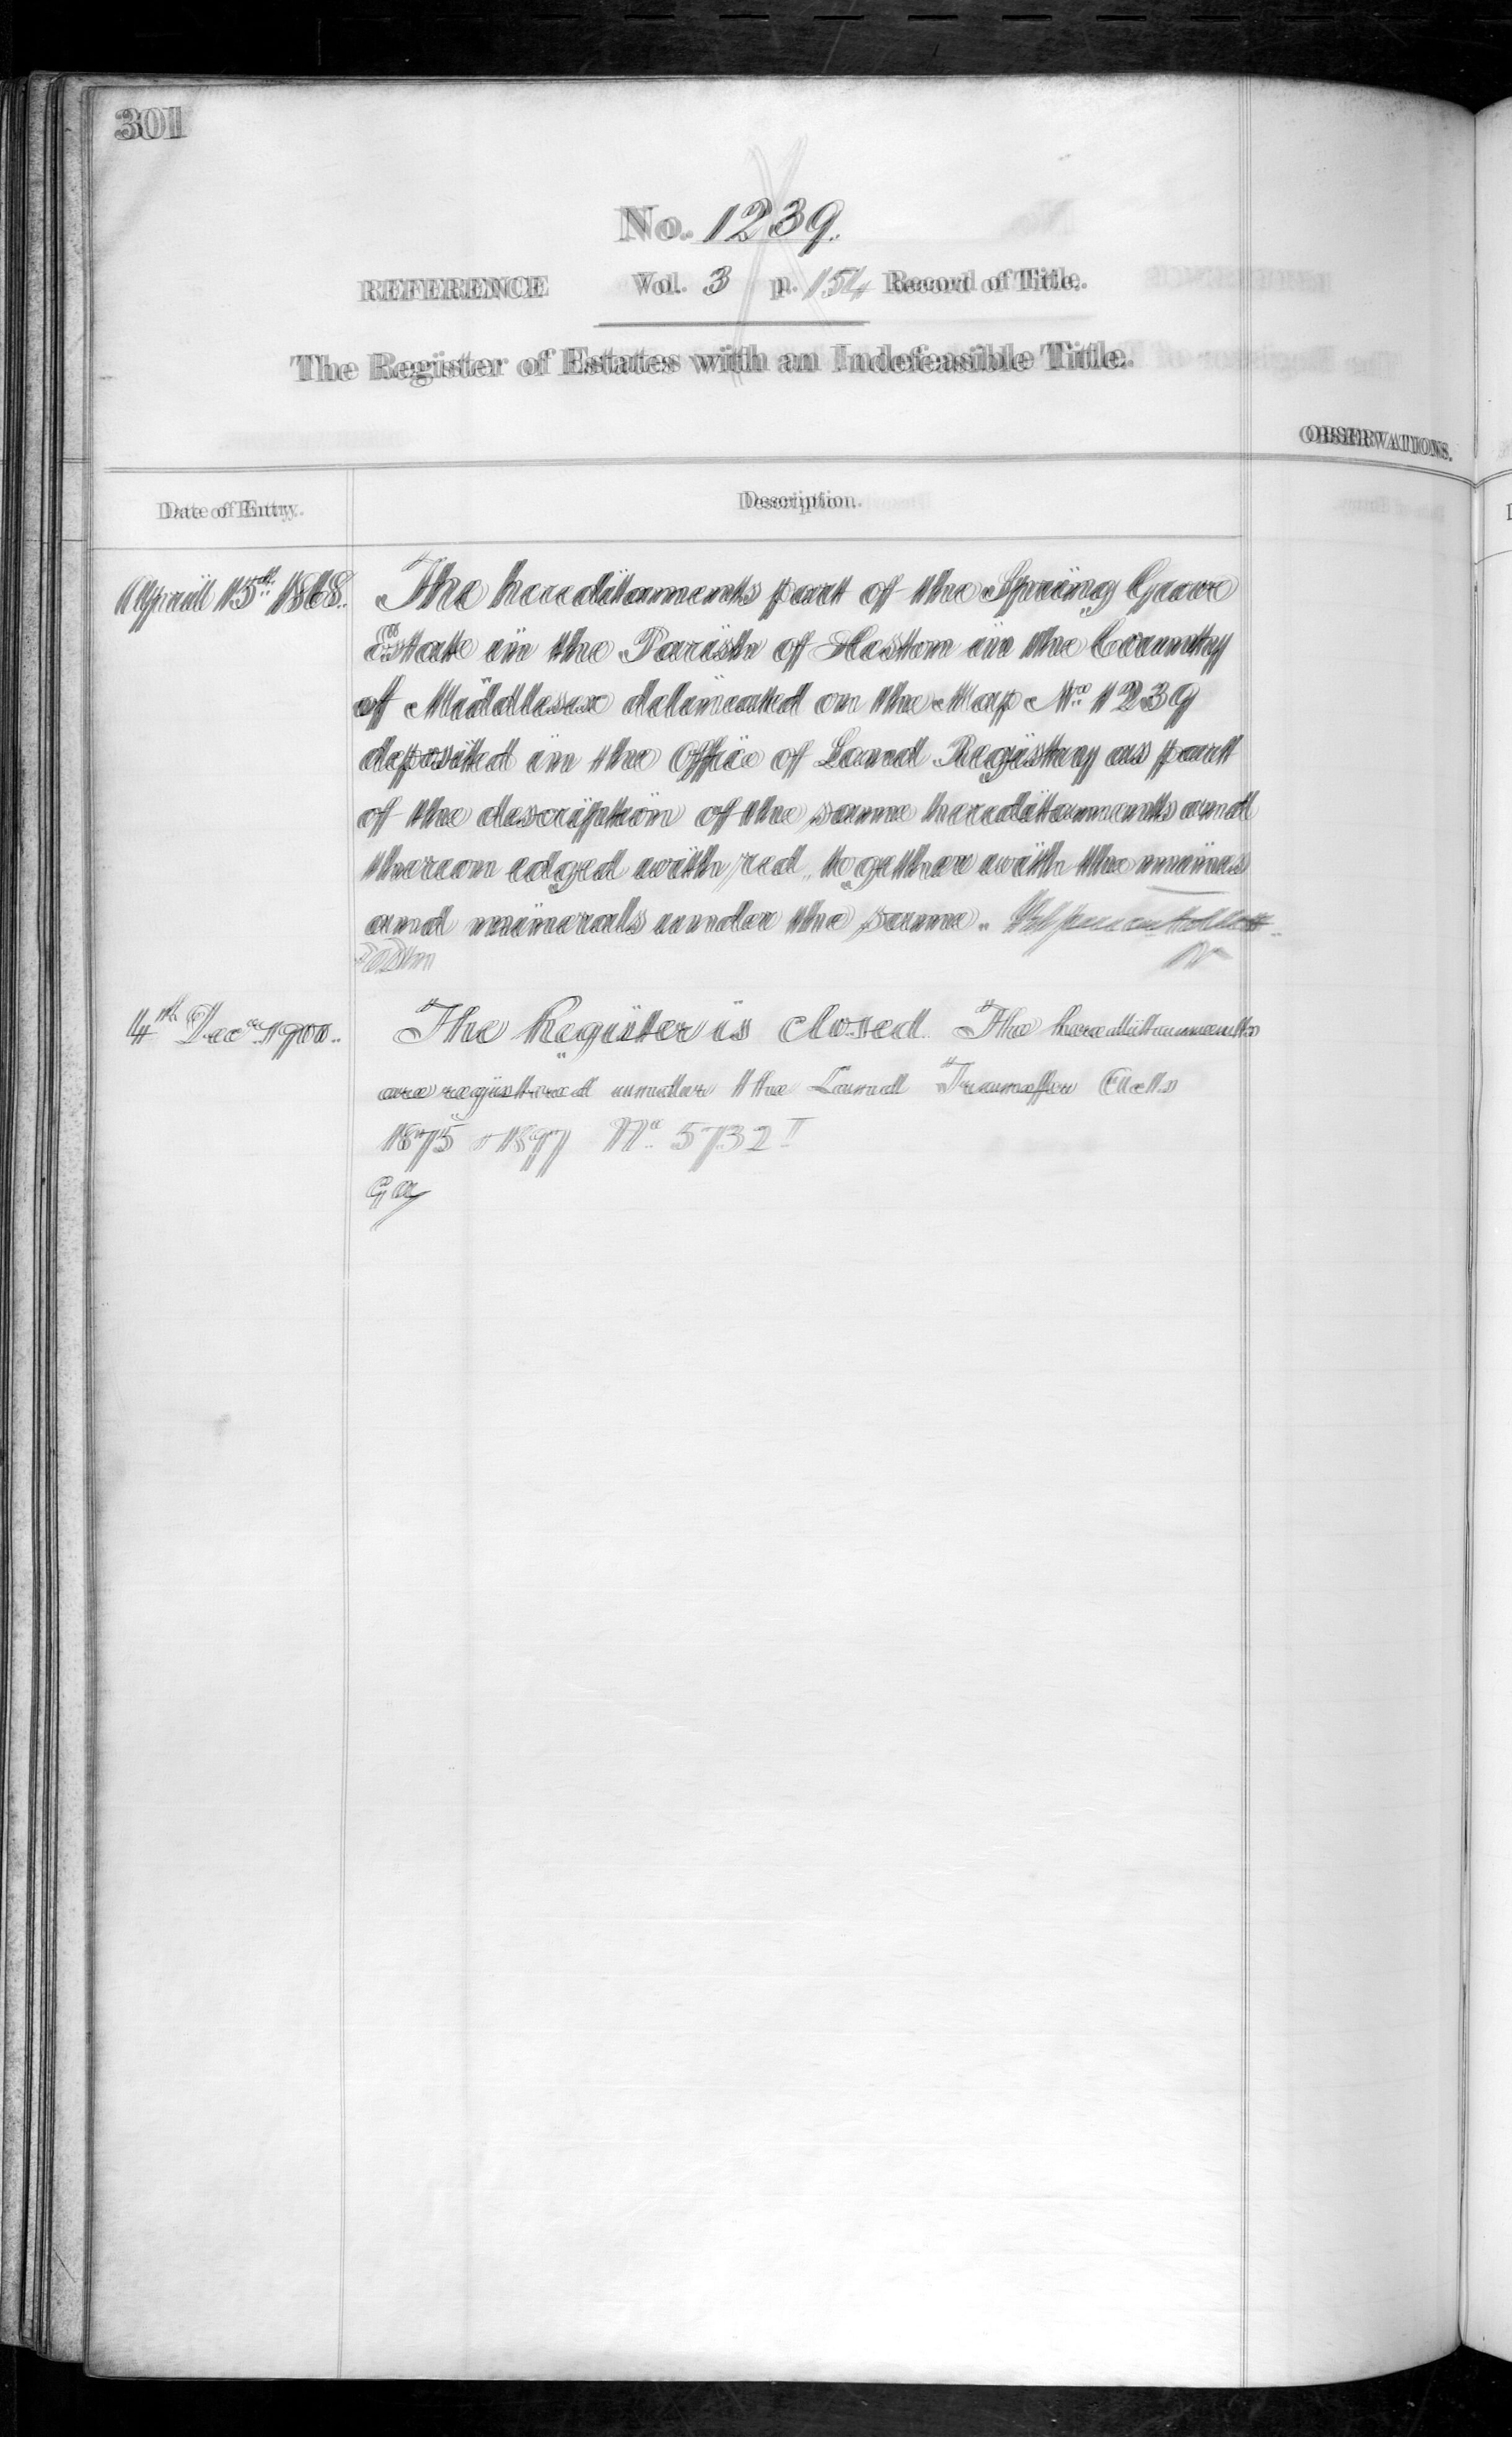 301
No. 1239.
REFERENCE Vol. 3 p. 154 Record of Title.
The Register of Estates with an Indefeasible Title.
OBSERVATIONS.
Date of Entry.
Description.
April 15th 1868.
The hereditaments part of the Spring Grove
Estate in the Parish of Heston in the County
of Middlesex delineated on the Map No. 1239
deposited in the Office of Land Registry as part
of the description of the same hereditaments and
thereon edged with red, together with the mines
and minerals under the same.
4th Decr 1900.
The Register is closed. The hereditaments
are registered under the Land Transfer Acts
1875 & 1897 No. 5732